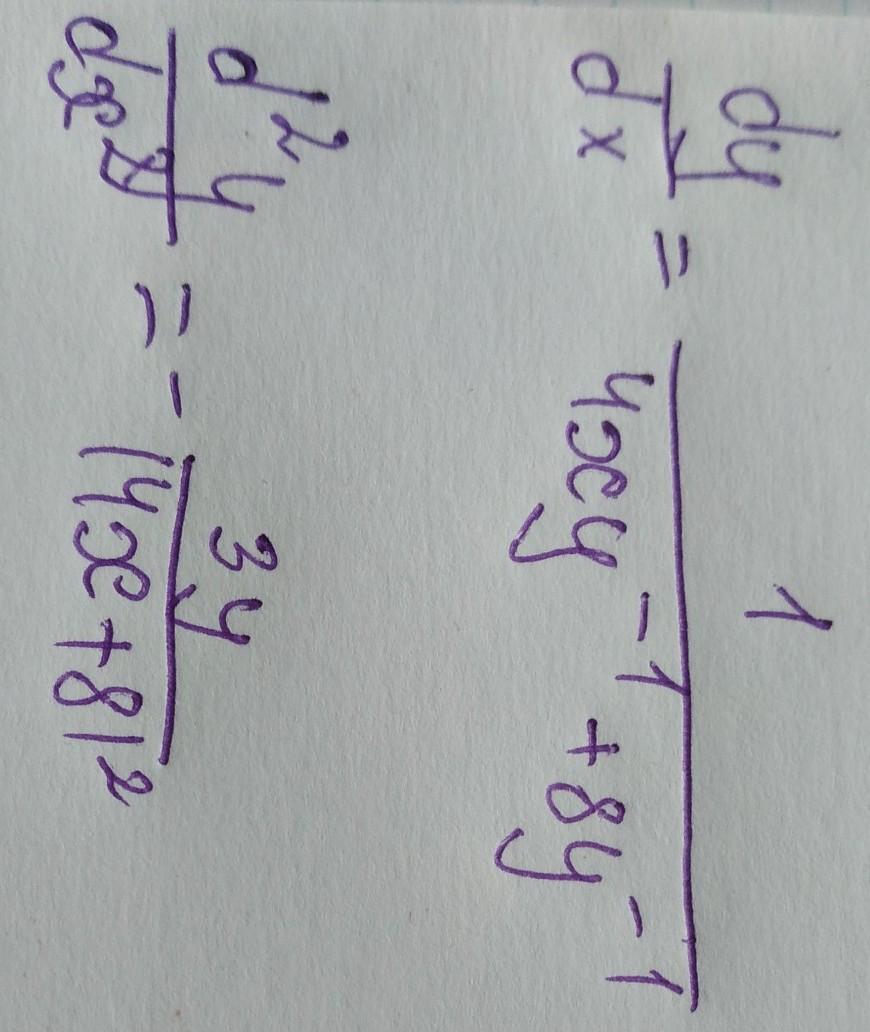 dy/dx = 1/(4xy^-1 + 8y^-1)
d²y/dx² = - 3y/(4x+8)²